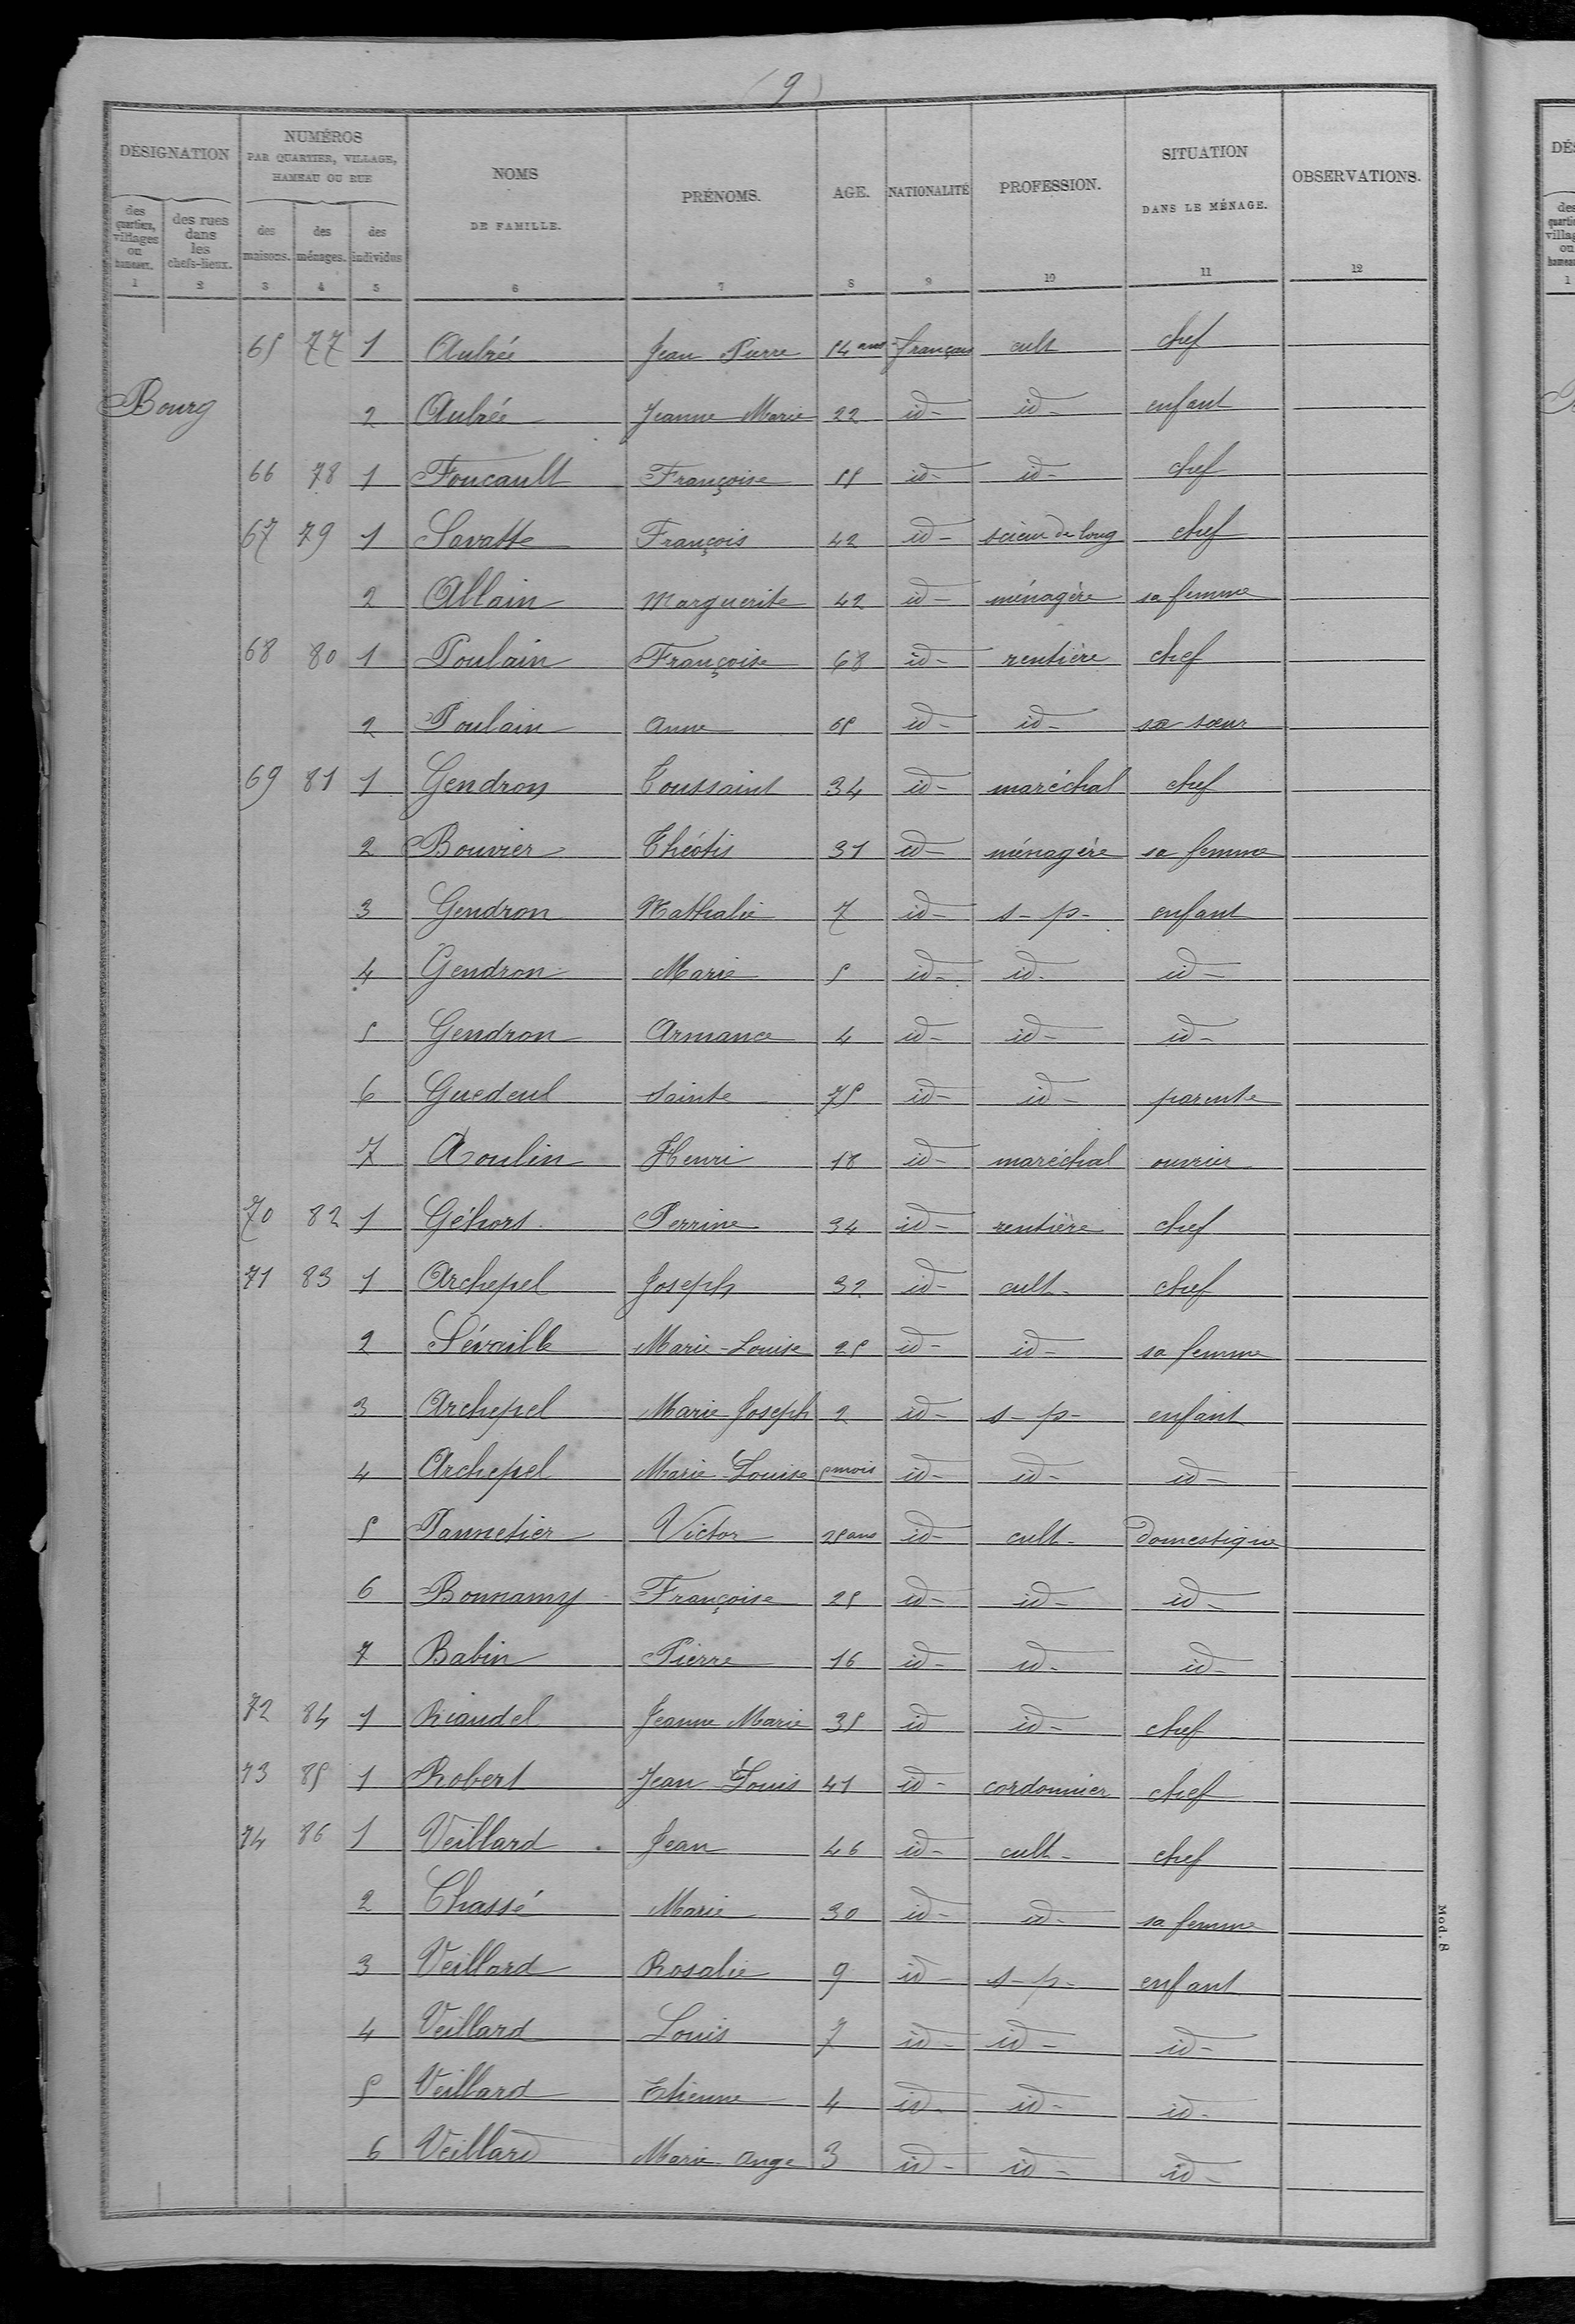 (9)
DÉSIGNATION NUMÉROS PAR QUARTIER, VILLAGE, HAMEAU OU RUE NOMS DE FAMILLE. PRÉNOMS. AGE. NATIONALITÉ PROFESSION. SITUATION DANS LE MÉNAGE. OBSERVATIONS.
des quartiers, villages ou hameaux. des rues dans les chefs-lieux. des maisons. des ménages. des individus
1 2 3 4 5 6 7 8 9 10 11 12
65 77 1 Aubrée Jean Pierre 54 ans français cult chef
Bourg 2 Aubrée Jeanne Marie 22 id- id- enfant
66 78 1 Foucault Françoise 55 id- id- chef
67 79 1 Savatte François 42 id- scieur de long chef
2 Allain Marguerite 42 id- ménagère sa femme
68 80 1 Poulain Françoise 68 id- rentière chef
2 Poulain Anne 65 id- id- sa sœur
69 81 1 Gendron Toussaint 34 id- maréchal chef
2 Bouvier Théotis 31 id- ménagère sa femme
3 Gendron Nathalie 7 id- s-p- enfant
4 Gendron Marie 5 id- id- id-
5 Gendron Armance 4 id- id- id-
6 Guedeul Sainte 75 id- id- parente
7 Aoulin Henri 18 id- maréchal ouvrier
70 82 1 Géhors Perrine 34 id- rentière chef
71 83 1 Archepel Joseph 32 id- cult- chef
2 Sévaille Marie-Louise 25 id- id- sa femme
3 Archepel Marie Joseph 2 id- s-p- enfant
4 Archepel Marie Louise 5 mois id- id- id-
5 Pannetier Victor 25 ans id- cult- domestique
6 Bonnamy Françoise 25 id- id- id-
7 Babin Pierre 16 id- id- id-
72 84 1 Riaudel Jeanne Marie 35 id id- chef
73 85 1 Robert Jean Louis 41 id- cordonnier chef
74 86 1 Veillard Jean 46 id- cult- chef
2 Chassé Marie 30 id- id- sa femme
3 Veillard Rosalie 9 id- s-p- enfant
4 Veillard Louis 7 id- id- id-
5 Veillard Etienne 4 id- id- id-
6 Veillard Marie Ange 3 id- id- id-
Mod. 8